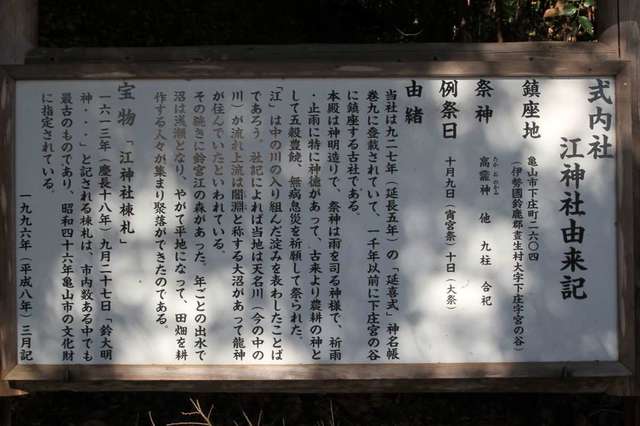 式内社
江神社由来記
鎮座地 亀山市下庄町二六〇四
(伊勢國鈴鹿郡晝生村大字下庄字宮の谷)
祭神 高龗神 他 九柱 合祀
たか おかかみ
例祭日 十月九日(宵宮祭)十日(大祭)
由緒
当社は九二七年(延長五年)の「延喜式」神名帳
巻九に登載されていて、一千年以前に下庄宮の谷
に鎮座する古社である。
本殿は神明造りで、祭神は雨を司る神様で、祈雨
・止雨に特に神徳があって、古来より農耕の神と
して五穀豊饒、無病息災を祈願して祭られた。
「江」は中の川の入り組んだ淀みを表わしたことば
であろう。社記によれば当地は天名川(今の中の
川)が流れ上流は闇淵と称する大沼があって龍神
が住んでいたといわれている。
その続きに鈴宮江の森があった。年ごとの出水で
沼は浅瀬となり、やがて平地になって、田畑を耕
作する人々が集まり聚落ができたのである。
宝物「江神社棟札」
一六一三年(慶長十八年)九月二十七日「鈴大明
神・・・」と記される棟札は、市内数ある中でも
最古のものであり、昭和四十六年亀山市の文化財
に指定されている。
一九九六年(平成八年)三月記